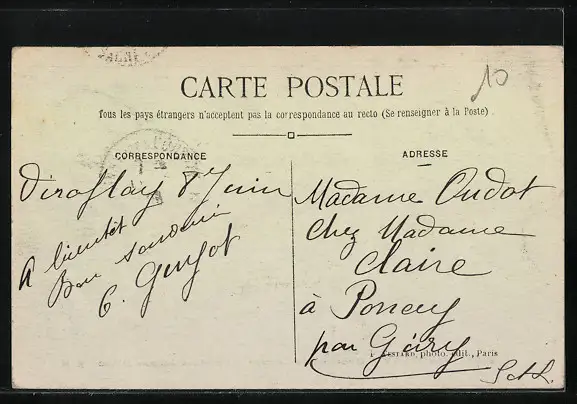 10
CARTE POSTALE
Tous les pays étrangers n'acceptent pas la correspondance au recto (Se renseigner à la Poste)
CORRESPONDANCE
Viroflay 8 Juin
A bientôt
Bon souvenir
C. Guyot
ADRESSE
Madame Oudot
chez Madame
Claire
à Poncey
par Givry
photo. édit., Paris
S et L.